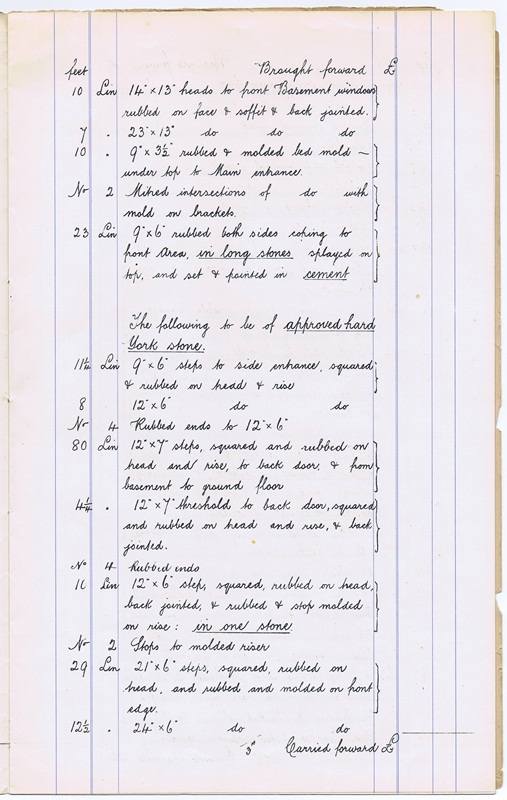 feet Brought forward £
10 Lin 14" x 13" heads to front Basement windows
rubbed on face & soffit & back jointed.
7 . 23" x 13" do do do
10 . 9" x 3½" rubbed & molded bed mold —
under top to Main entrance.
No 2 Mitred intersections of do with
mold on brackets.
23 Lin 9" x 6" rubbed both sides coping to
front Area, in long stones splayed on
top, and set & pointed in cement
The following to be of approved hard
York stone.
11½ Lin 9" x 6" steps to side entrance, squared
& rubbed on head & rise
8 12" x 6" do do
No 4 Rubbed ends to 12" x 6"
80 Lin 12" x 7" steps, squared and rubbed on
head and rise, to back door, & from
basement to ground floor
4¼ . 12" x 7" threshold to back door, squared
and rubbed on head and rise, & back
jointed.
No 4 Rubbed ends
Lin 12" x 6" step, squared, rubbed on head,
back jointed, & rubbed & stop molded
on rise: in one stone
No 2 Stops to molded riser
29 Lin 21" x 6" steps, squared, rubbed on
head, and rubbed and molded on front
edge.
12½ . 24" x 6" do do
3" Carried forward £